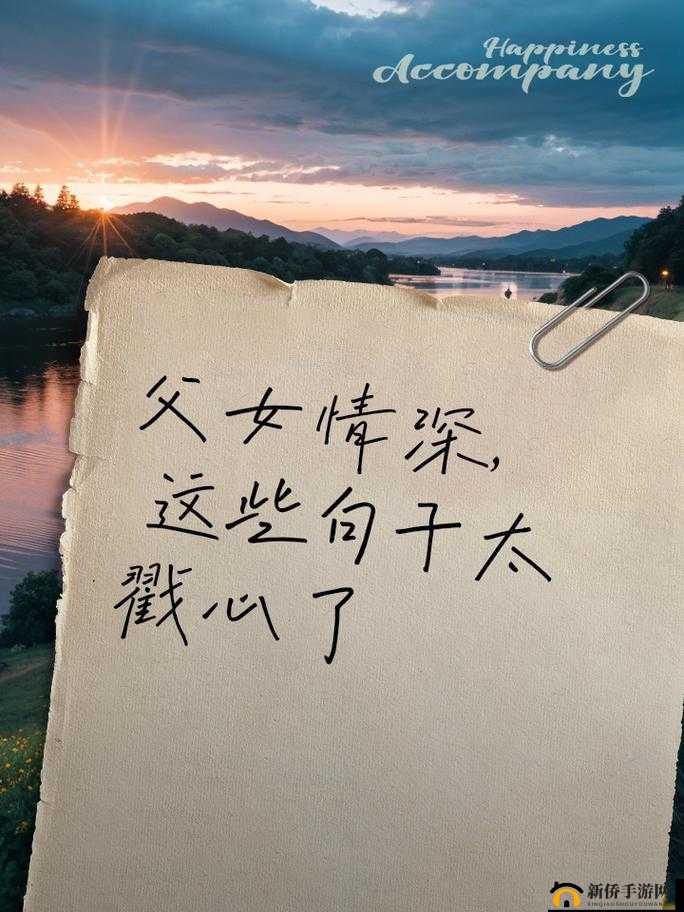 Happiness
Accompany
父女情深,
这些句子太
戳心了
新侨手游网
XINQIAOSHOUYOUWANG